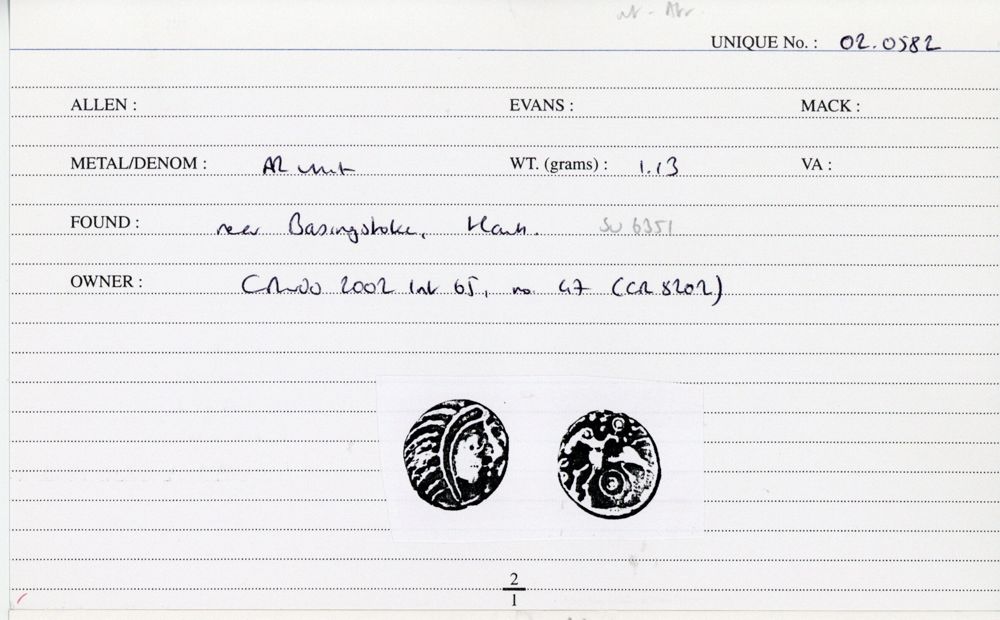 UNIQUE No. : 02.0582
ALLEN : EVANS : MACK :
METAL/DENOM : AR unit WT. (grams) : 1.13 VA :
FOUND : near Basingstoke, Hants. SU 6351
OWNER : 2002 list 65, no. 47 (CR 8202)
2
1